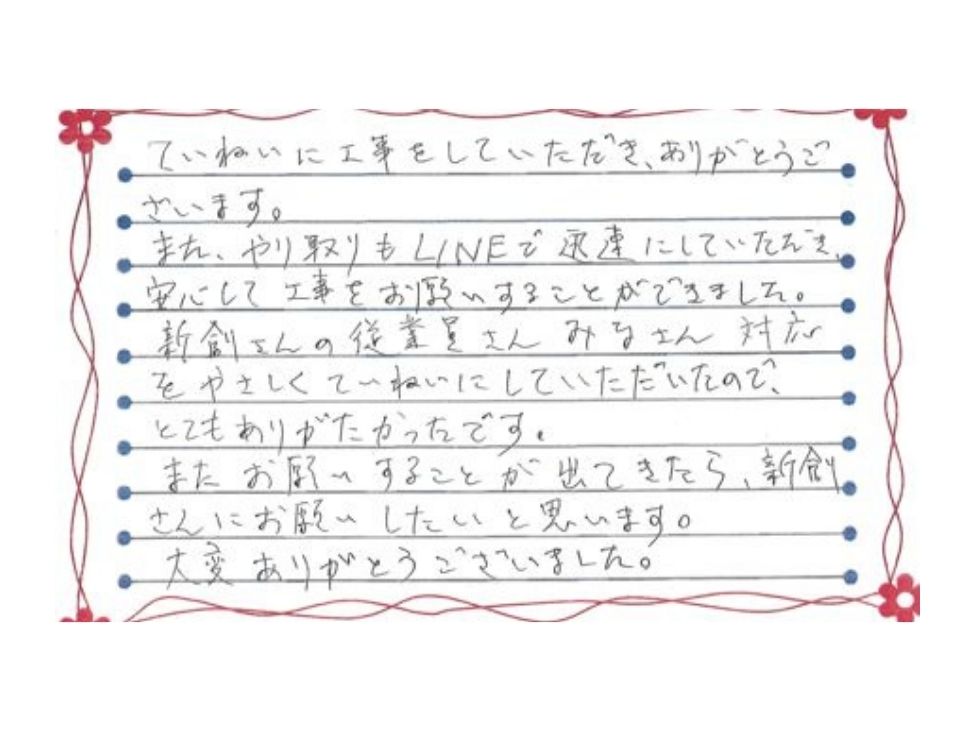 ていねいに工事をしていただき、ありがとうご
ざいます。
また、やり取りもLINEで迅速にしていただき、
安心して工事をお願いすることができました。
新創さんの従業員さんみなさん 対応
をやさしくていねいにしていただいたので、
とてもありがたかったです。
またお願いすることが出てきたら、新創
さんにお願いしたいと思います。
大変ありがとうございました。